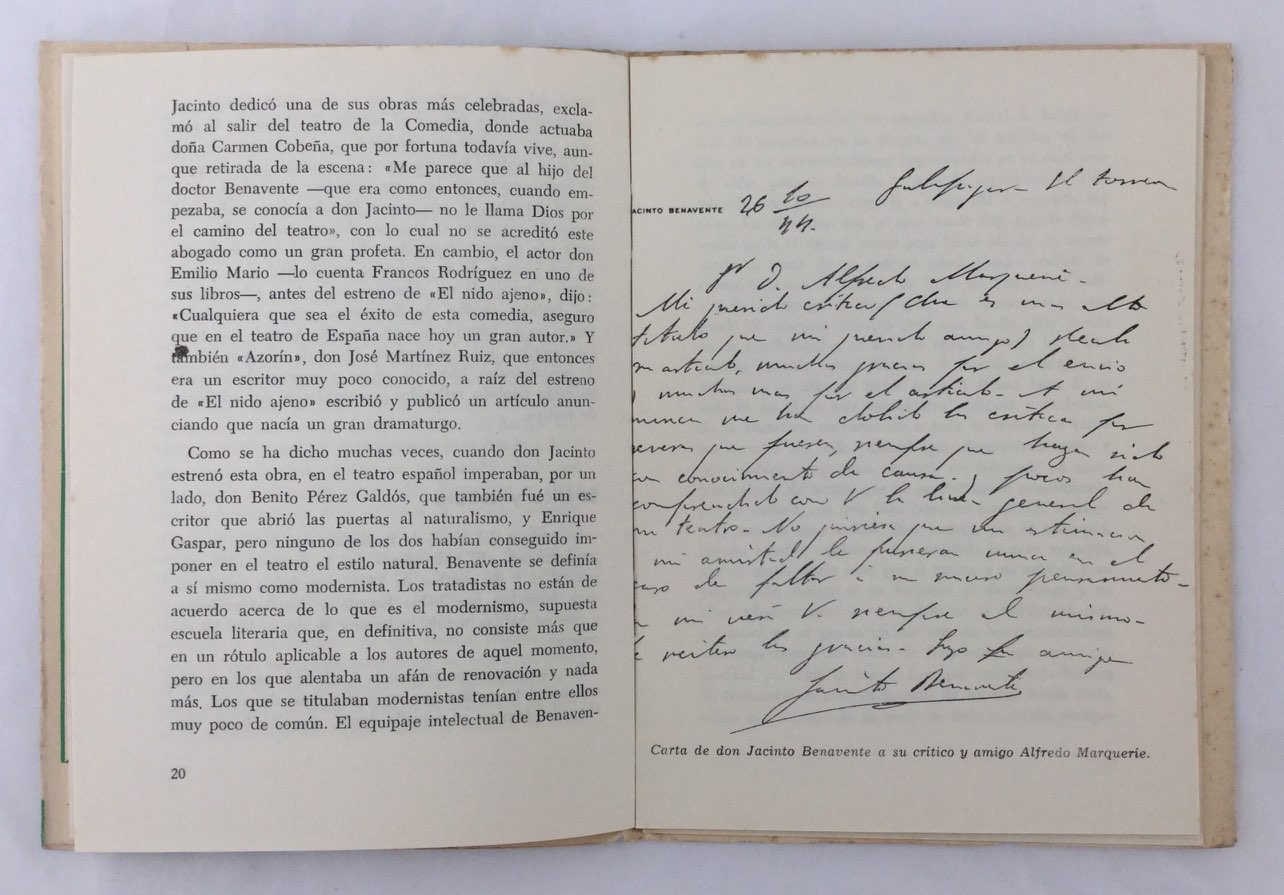 Jacinto dedicó una de sus obras más celebradas, excla-
mó al salir del teatro de la Comedia, donde actuaba
doña Carmen Cobeña, que por fortuna todavía vive, aun-
que retirada de la escena: «Me parece que al hijo del
doctor Benavente —que era como entonces, cuando em-
pezaba, se conocía a don Jacinto— no le llama Dios por
el camino del teatro», con lo cual no se acreditó este
abogado como un gran profeta. En cambio, el actor don
Emilio Mario —lo cuenta Francos Rodríguez en uno de
sus libros—, antes del estreno de «El nido ajeno», dijo:
«Cualquiera que sea el éxito de esta comedia, aseguro
que en el teatro de España nace hoy un gran autor.» Y
también «Azorín», don José Martínez Ruiz, que entonces
era un escritor muy poco conocido, a raíz del estreno
de «El nido ajeno» escribió y publicó un artículo anun-
ciando que nacía un gran dramaturgo.
Como se ha dicho muchas veces, cuando don Jacinto
estrenó esta obra, en el teatro español imperaban, por un
lado, don Benito Pérez Galdós, que también fué un es-
critor que abrió las puertas al naturalismo, y Enrique
Gaspar, pero ninguno de los dos habían conseguido im-
poner en el teatro el estilo natural. Benavente se definía
a sí mismo como modernista. Los tratadistas no están de
acuerdo acerca de lo que es el modernismo, supuesta
escuela literaria que, en definitiva, no consiste más que
en un rótulo aplicable a los autores de aquel momento,
pero en los que alentaba un afán de renovación y nada
más. Los que se titulaban modernistas tenían entre ellos
muy poco de común. El equipaje intelectual de Benaven-
20
Galapagar El torreon
ACINTO BENAVENTE 26 10/44.
Sr D. Alfredo Marquerie-
Mi querido crítico (que es mas
titulo que mi querido amigo)
articulo, muchas gracias por el envio
muchas mas por el articulo- A mi
nunca me ha dolido la crítica por
severa que fuera, siempre que haya sido
con conocimiento de causa. y pocos han
comprendido como V. la linea general de
mi teatro- No quisiera que mi estimacion
mi amistad le pusieran nunca en el
caso de faltar á su pensamiento-
mi verá V. siempre el mismo-
reitero las gracias- Suyo amigo
Jacinto Benavente
Carta de don Jacinto Benavente a su crítico y amigo Alfredo Marquerie.